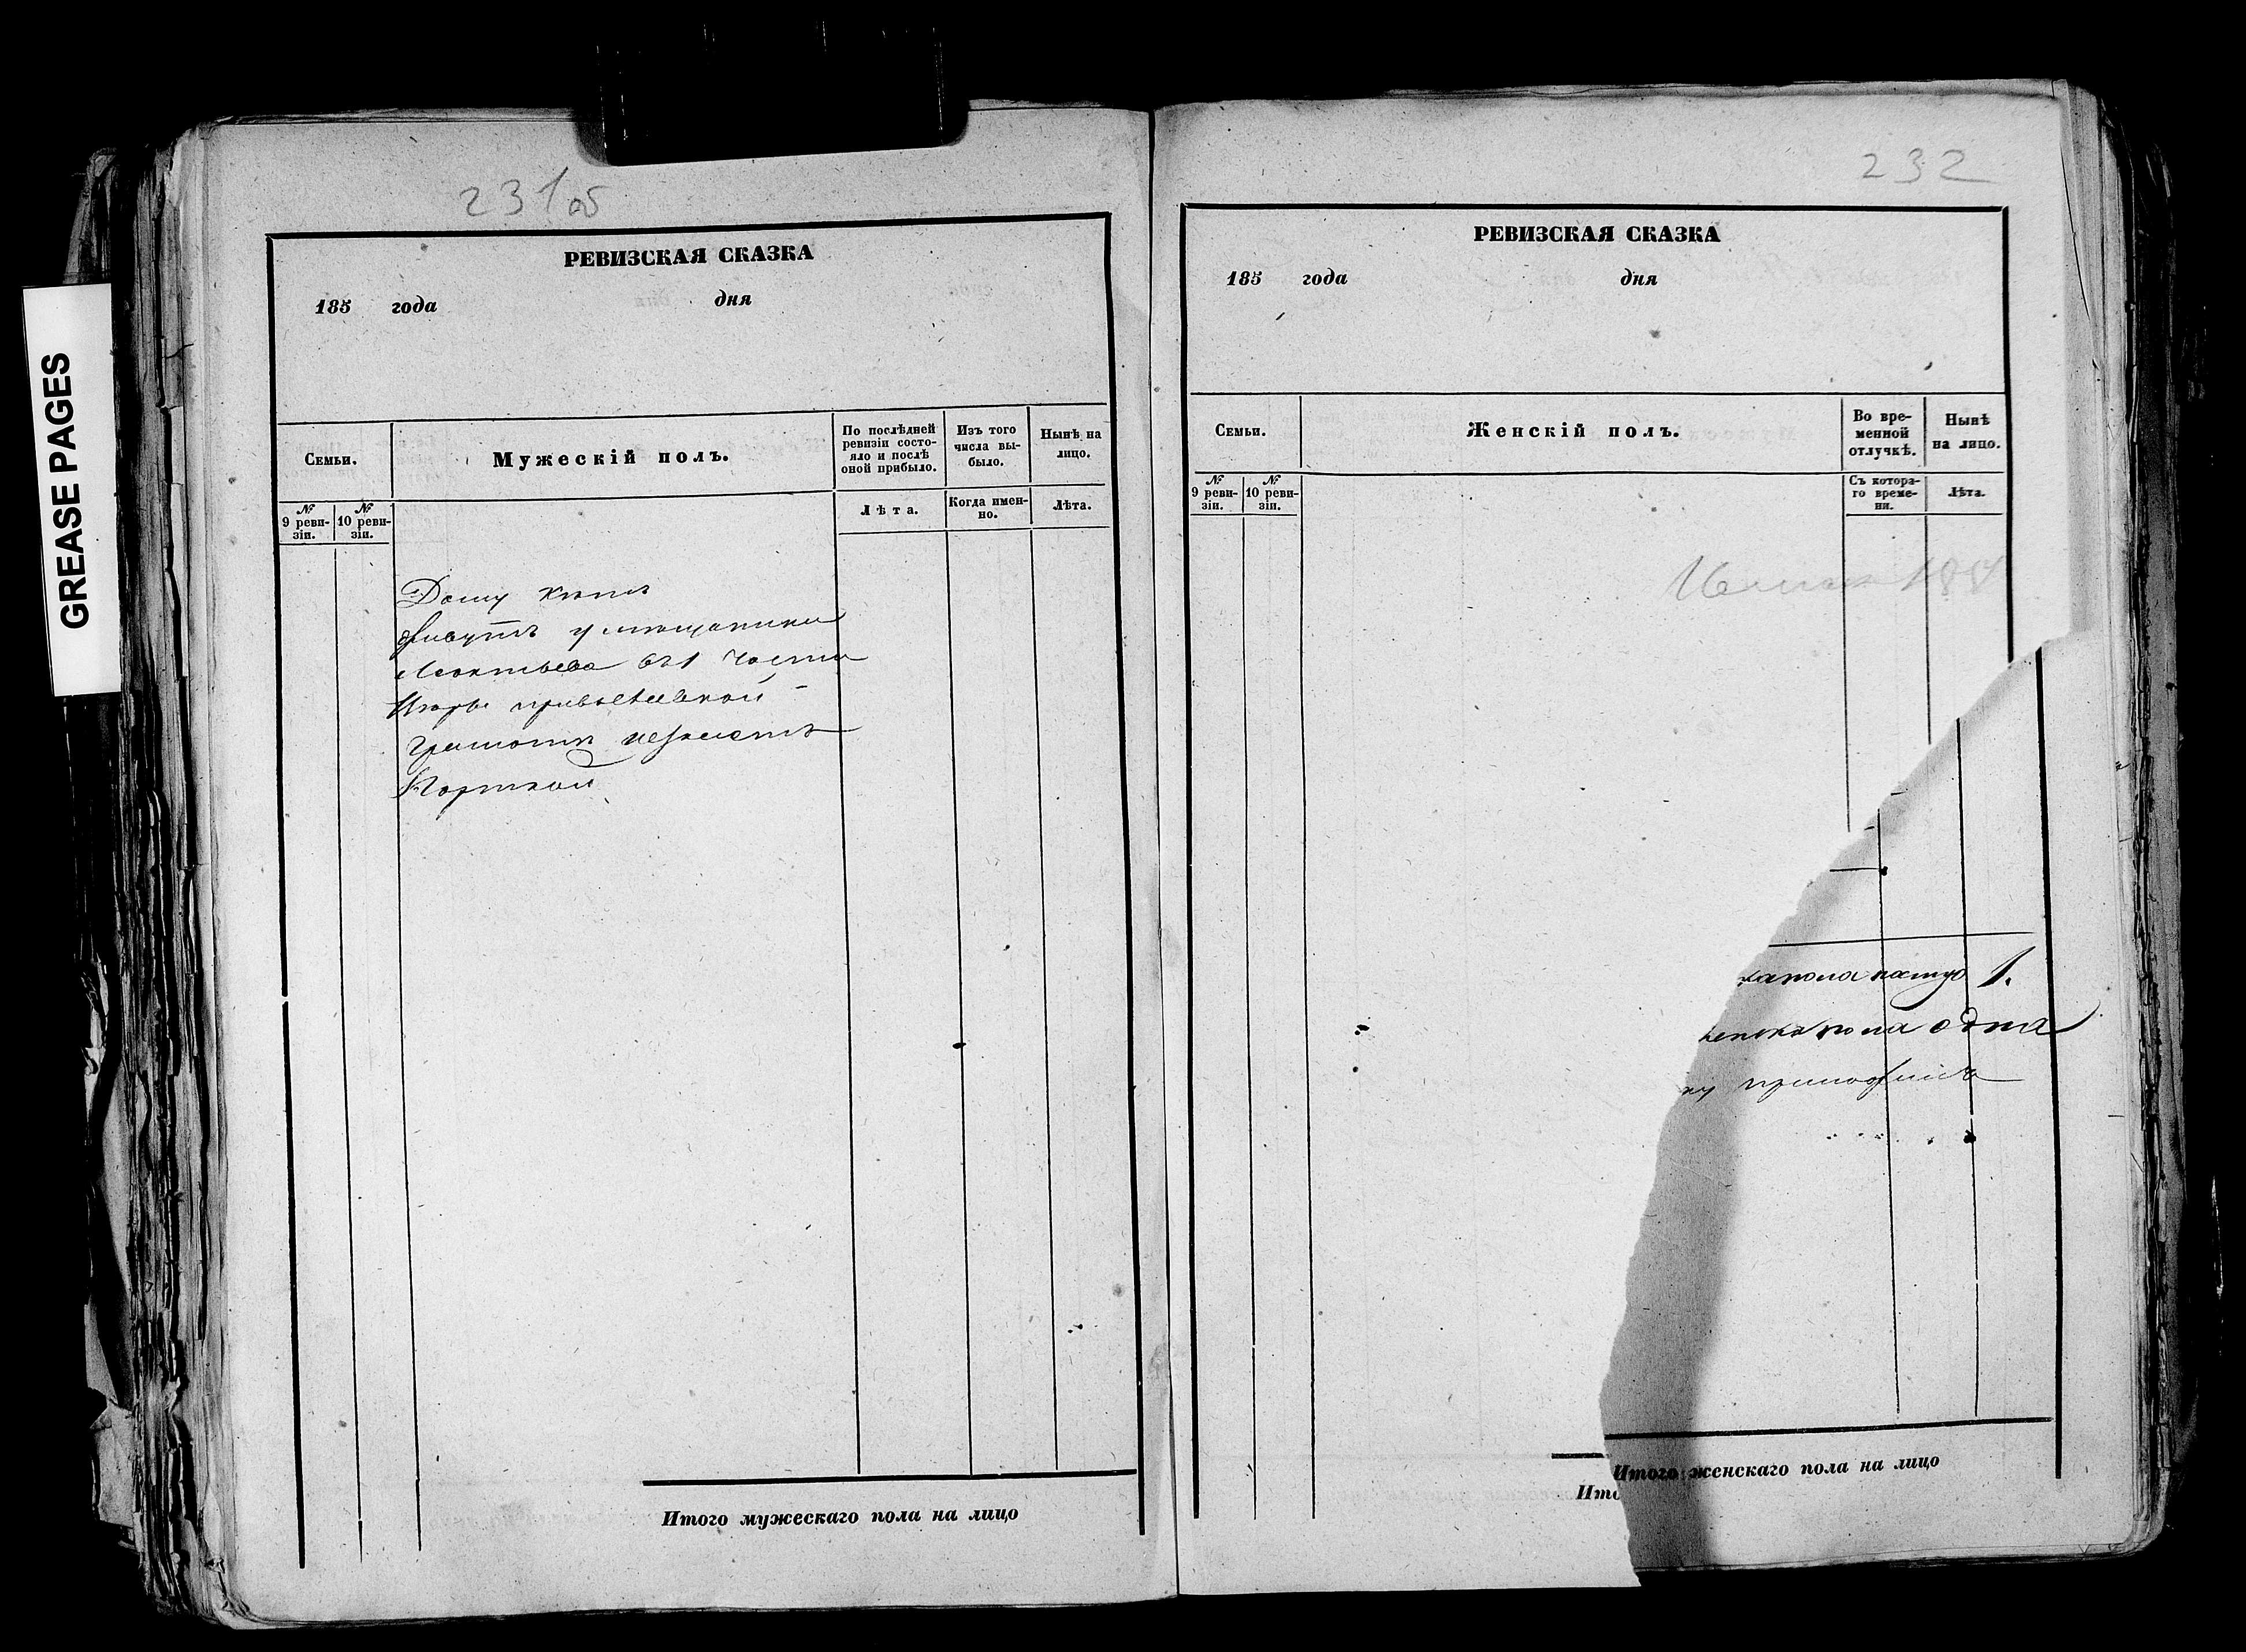 GREASE PAGES
231об
РЕВИЗСКАЯ СКАЗКА
185 года дня
Семьи.
Мужескій полъ.
По послѣдней ревизіи состояло и послѣ оной прибыло.
Изъ того числа выбыло.
Нынѣ на лицо.
№ 9 ревизіи.
№ 10 ревизіи.
Лѣта.
Когда именно.
Лѣта.
Дому нѣтъ
живутъ у мещанина
Леонтьева въ 1 части
грамоты не знаетъ
Портной
Итого мужескаго пола на лицо
232
РЕВИЗСКАЯ СКАЗКА
185 года дня
Семьи.
Женскій полъ.
Во временной отлучкѣ.
Нынѣ на лицо.
№ 9 ревизіи.
№ 10 ревизіи.
Съ котораго времени.
Лѣта.
пола налицо 1.
женска пола одна
приложилъ
Итого женскаго пола на лицо
Ито